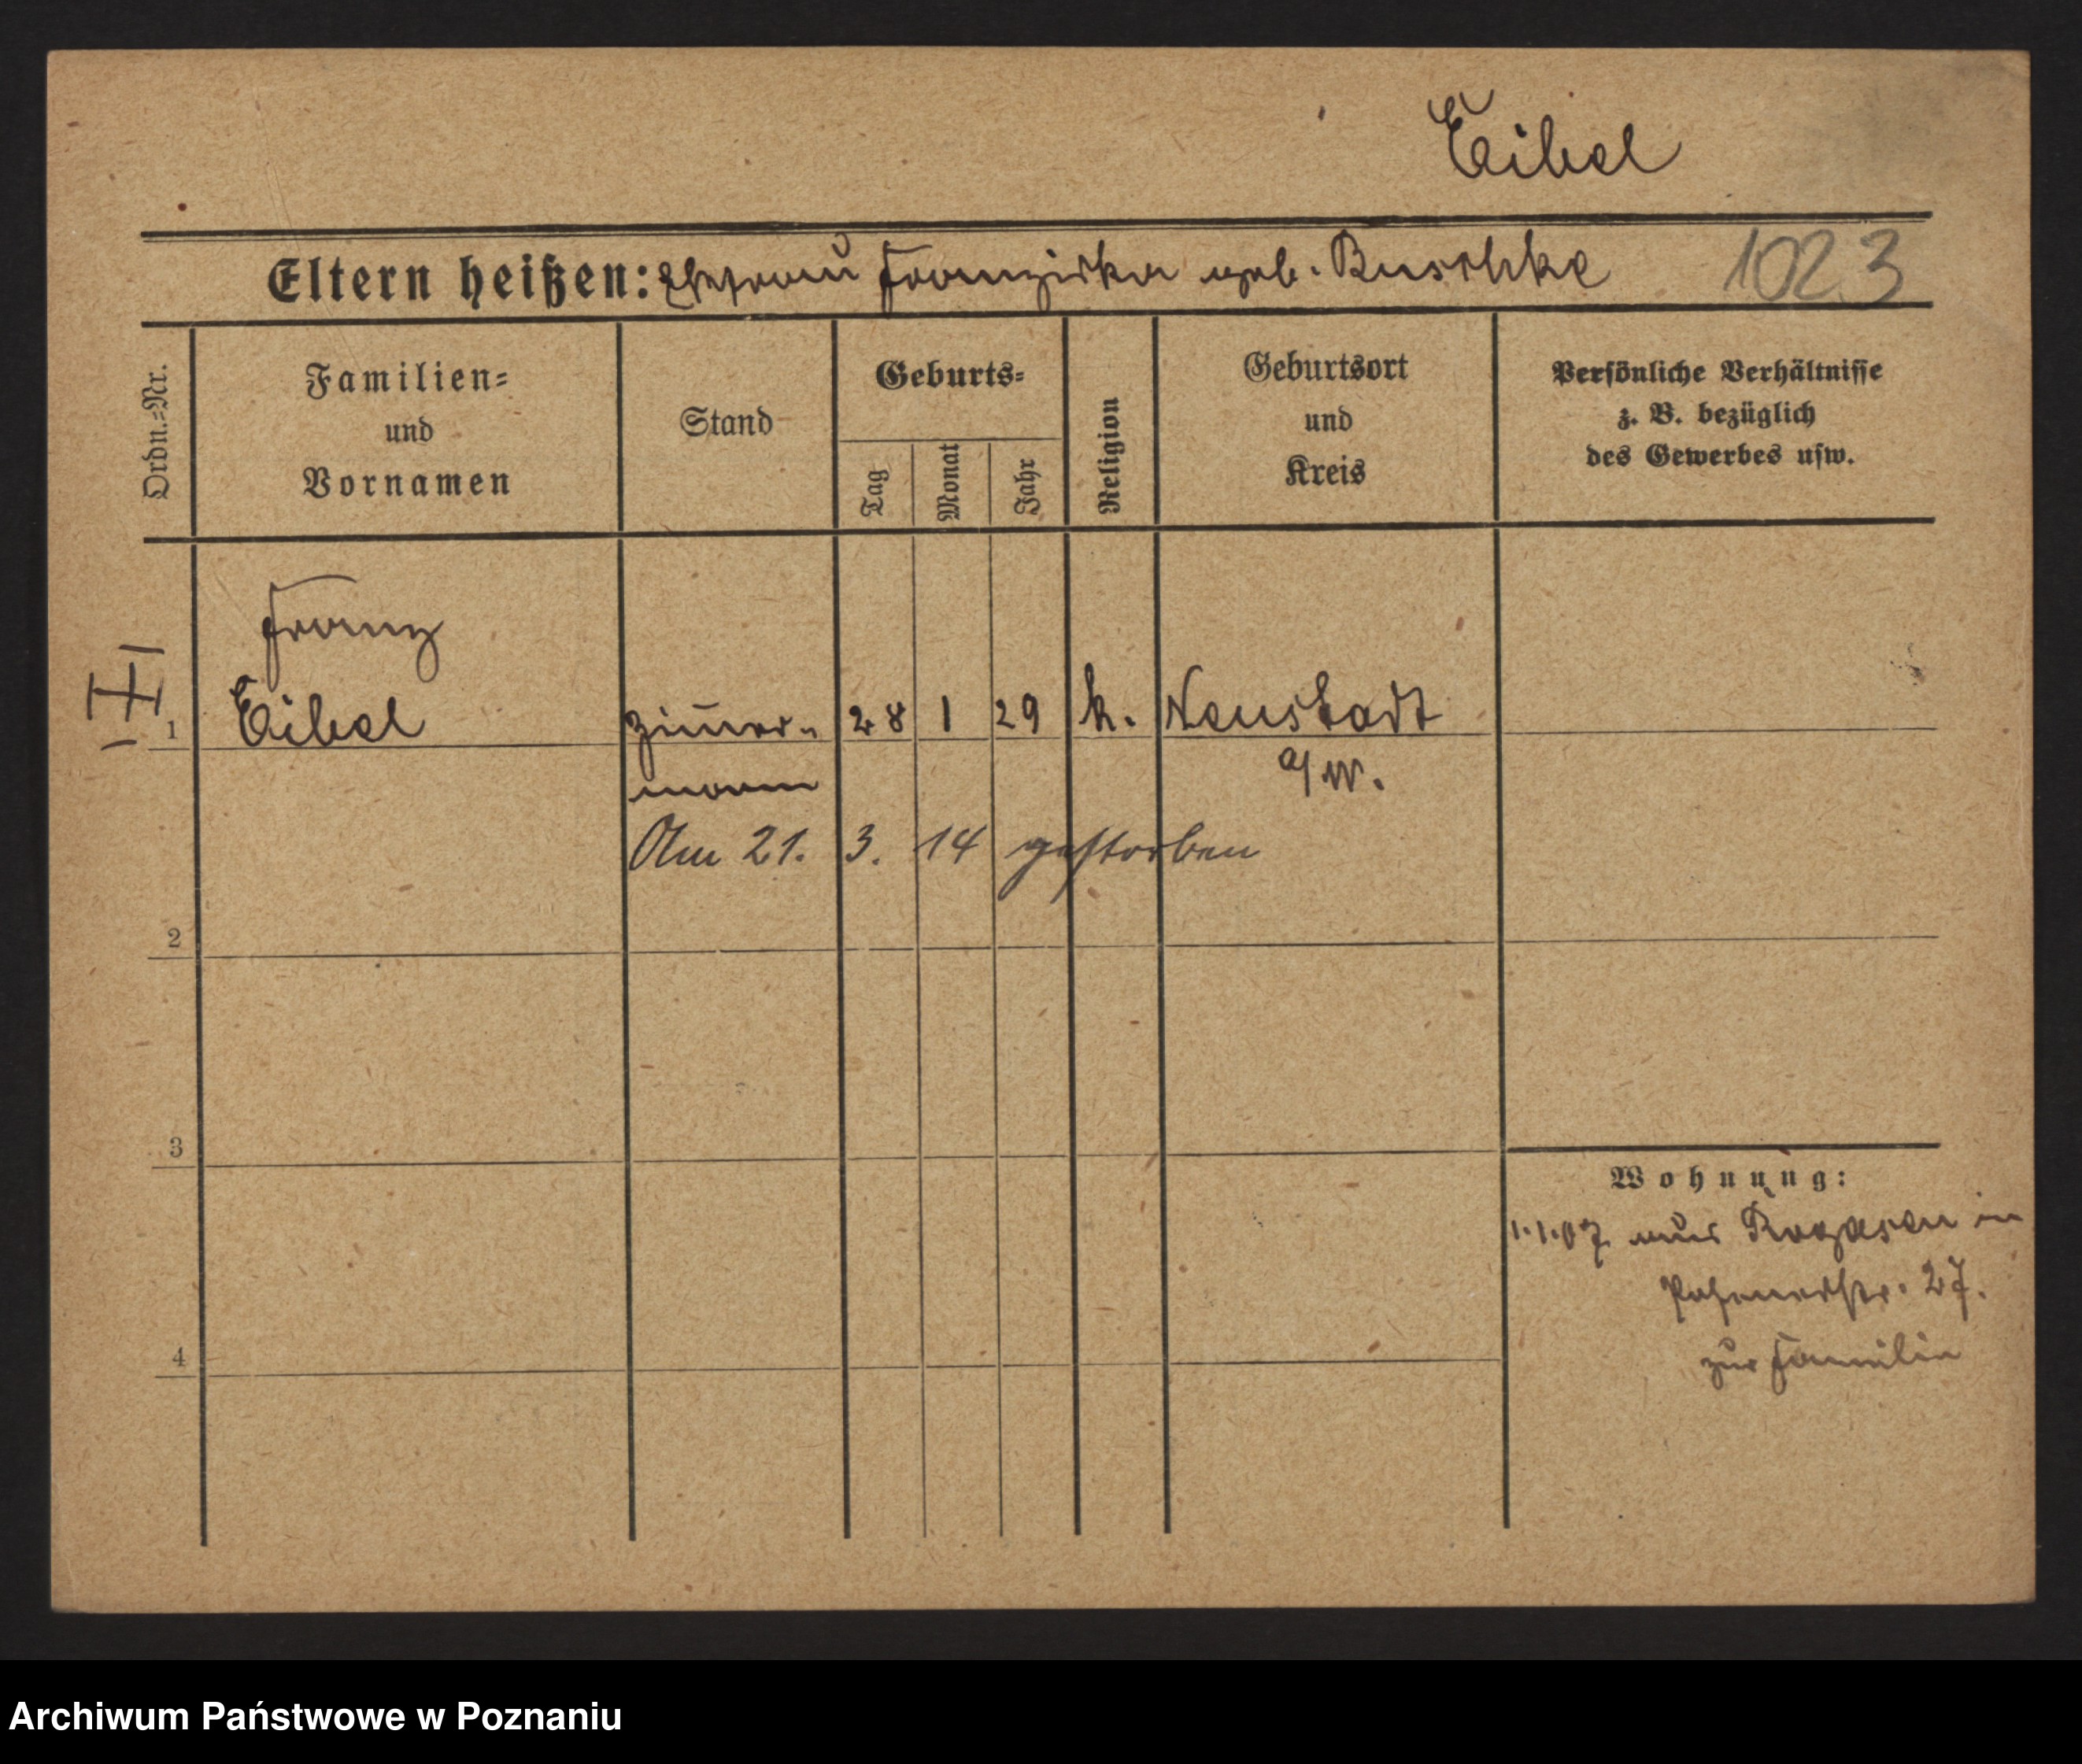 Eibel
Eltern heißen: Ehefrau Franziska geb. Buschke 1023
Ordn.=Nr.
Familien=
und
Vornamen
Stand
Geburts=
Tag
Monat
Jahr
Religion
Geburtsort
und
Kreis
Persönliche Verhältnisse
z. B. bezüglich
des Gewerbes usw.
Franz
1 Eibel Zim̄er- 28 1 29 k. Neustadt
mann a/W.
Am 21. 3. 14 gestorben
2
3
4
Wohnung:
1.1.07 aus Rogasen in
Posenerstr. 27.
zur Familie
Archiwum Państwowe w Poznaniu